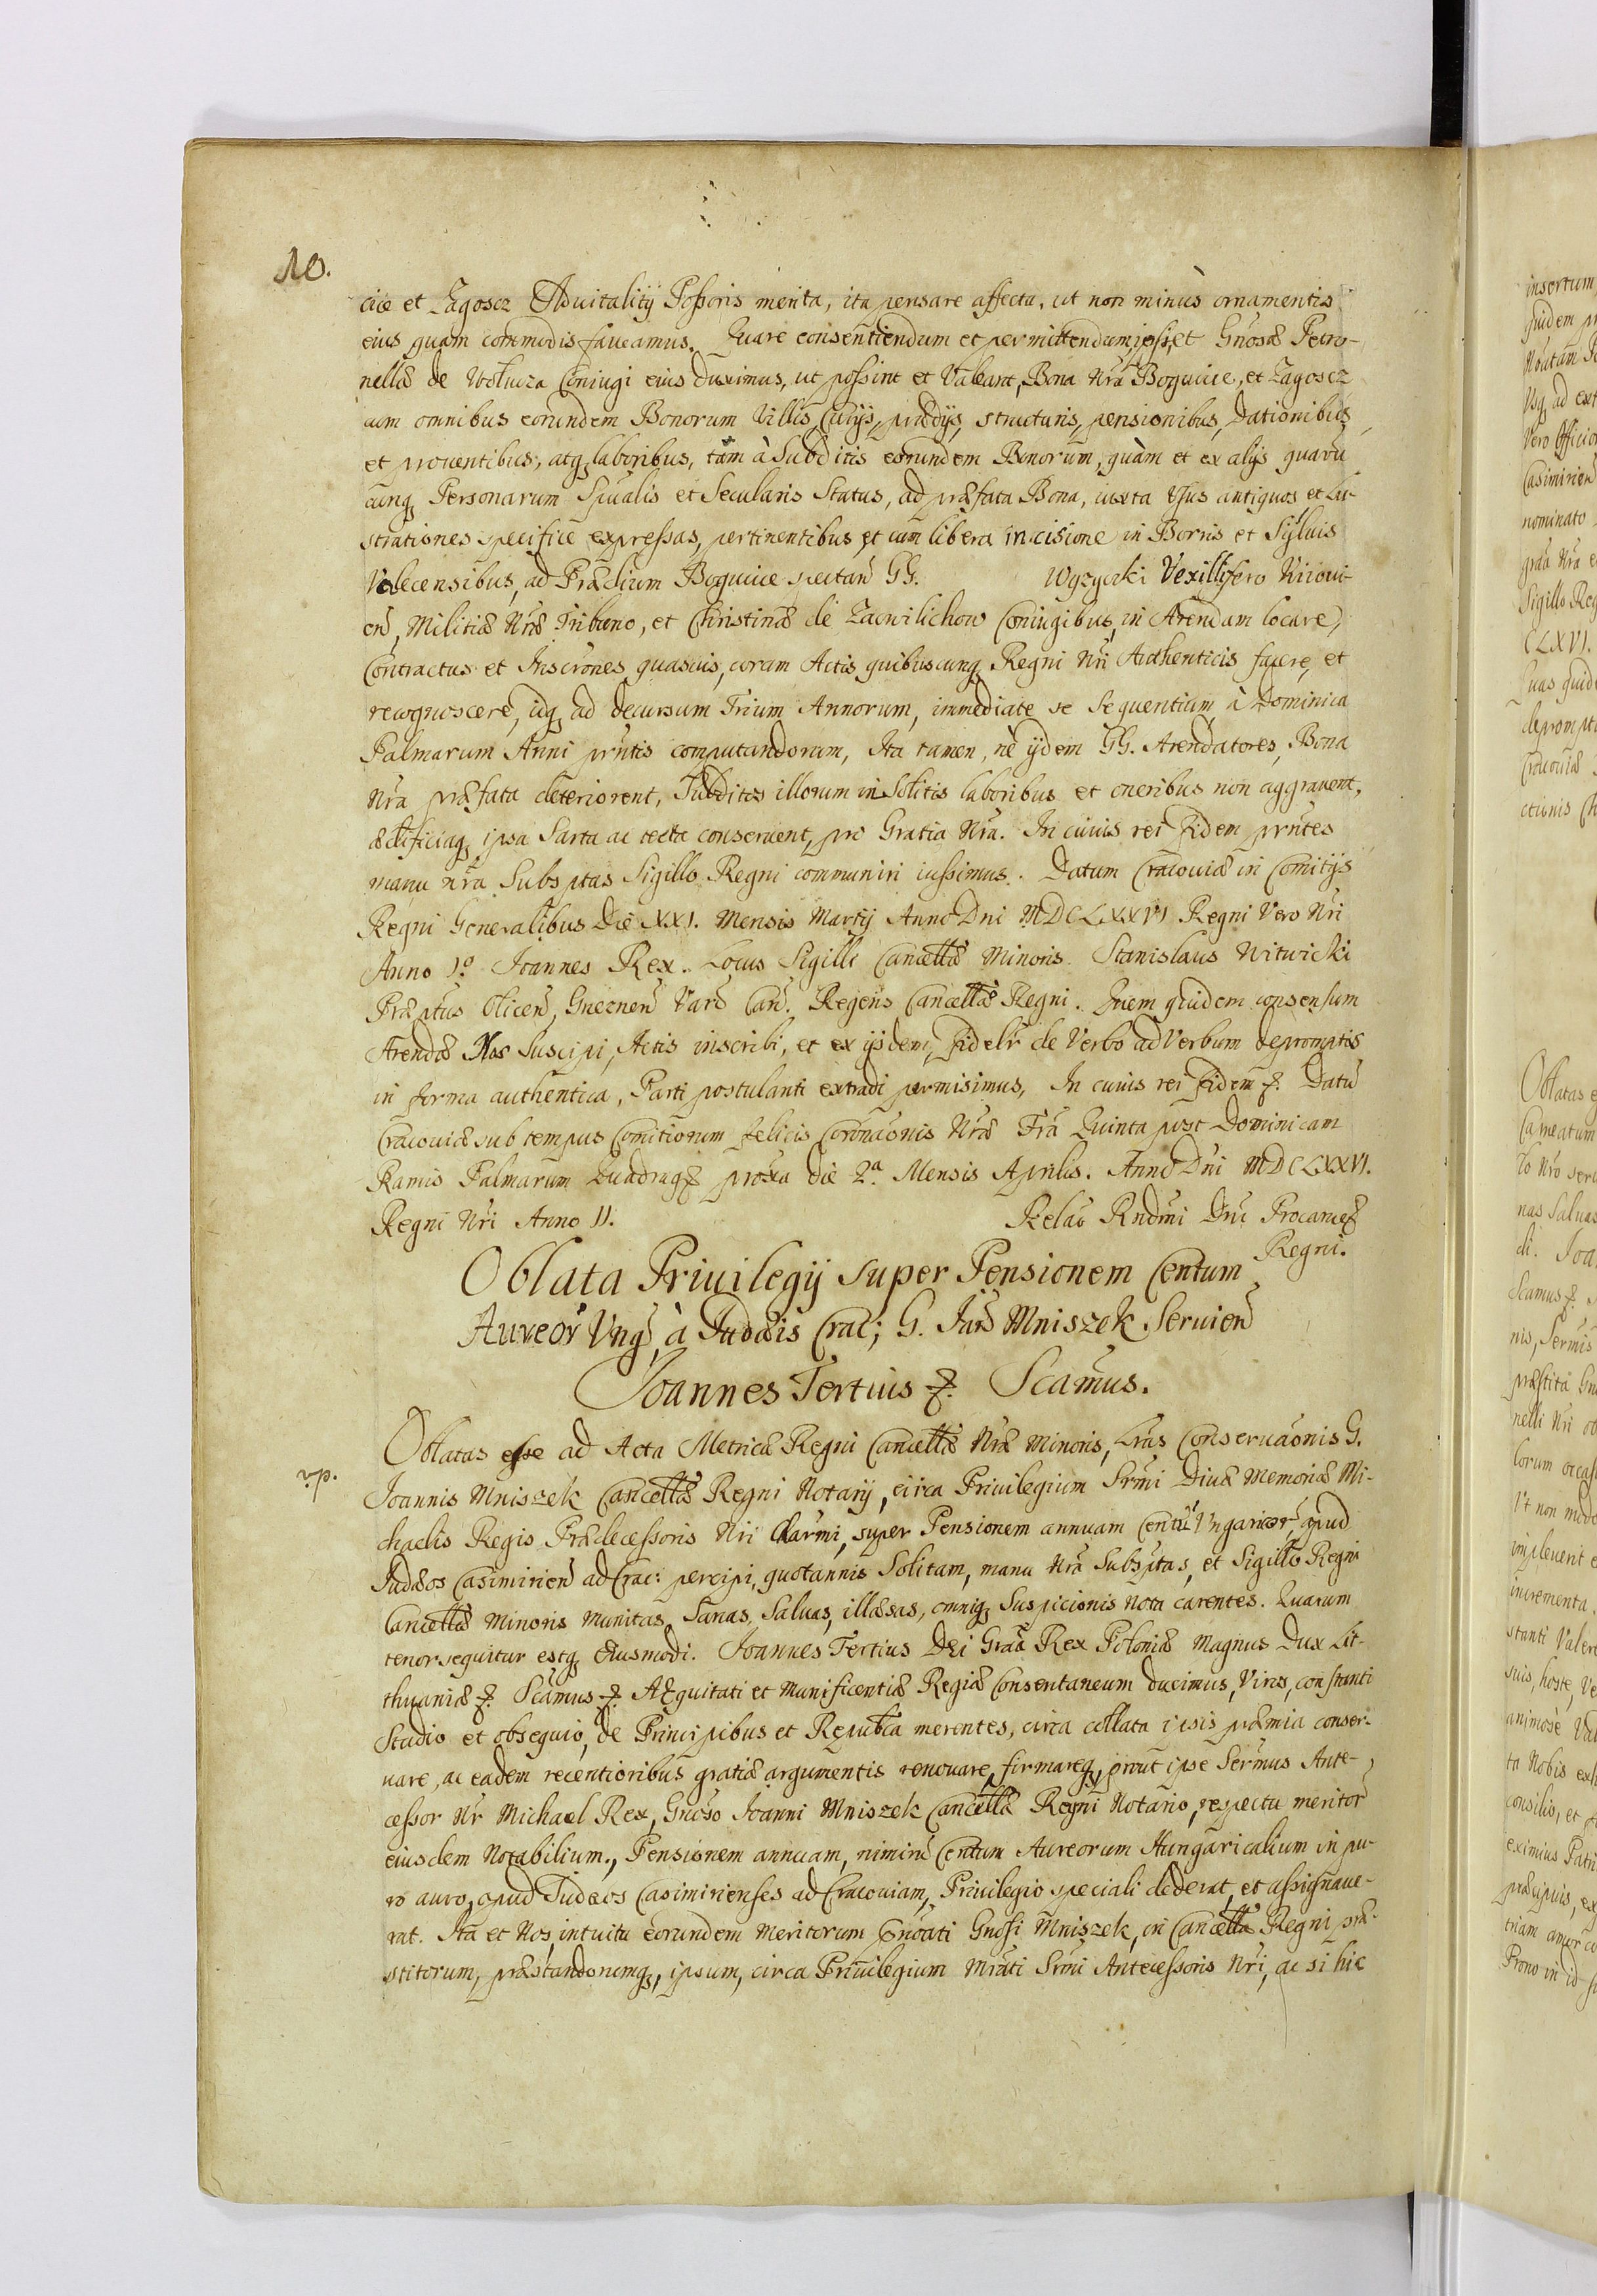 10.
cice et Zagoscz Aduitalitÿ Possoris merita, ita pensare affectu, ut non minùs ornamentis
eius quam commodis faueamus. Quare consentiendum et permittendum ipsi, et Gnosæ Petro-
nellæ de Wotucza Coniugi eius duximus, ut possint et Valeant, Bona Nra Boguciice, et Zagoscz
cum omnibus eorundem Bonorum Villis, prædÿs, structuris, pensionibus, Dationibus
et prouentibus, atq laboribus, tam à Subditis eorundem Bonorum, quàm et ex alÿs quarū
cunq Personarum Spualis et Secularis Status, ad præfata Bona, iuxta Usus antiquos et Lu-
strationes specifice expressas, pertinentibus et cum libera incisione in Borris et Syluis
Valecensibus, ad Prædium Boguciice spectan GG. Wyzycki Vexillifero Kiioui-
en, Militiæ Nræ Tribuno, et Christinæ de Zacwilichow Coniugibus, in Arendam locare,
Contractus et Inscrones quasuis, coram Actis quibuscunq Regni Nri Authenticis facere, et
recognoscere, idq ad decursum Trium Annorum, immediate se Sequentium, à Dominica
Palmarum Anni prntis computandorum, Ita tamen, nè ijdem GG. Arendatores, Bona
Nra præfata deteriorent, Subditos illorum inSolitis laboribus et oneribus non aggrauent,
ædificiaq ipsa Sarta ac tecta conseruent, pro Gratia Nra. In cuius rei Fidem prntes
manu nra Subsptas Sigillo Regni communiri iussimus. Datum Cracouiæ in Comitÿs
Regni Generalibus Die XXI. Mensis Martÿ Anno Dni MDCLXXVI Regni Vero Nri
Anno 1º Joannes Rex. Locus Sigilli Cancellæ Minoris. Stanislaus Witwicki
Præptus Olicen, Gneznen Vars Can. Regens Cancellæ Regni. Quem quidem consensum
Arendæ Nos Suscipi, Actis inscribi, et ex ijsdem, Fidelr de Verbo ad Verbum depromptis
in forma authentica, Parti postulanti extradi permisimus, In cuius rei Fidem &. Datū
Cracouiæ sub tempus Comitiorum felicis Coronaonis Nræ Fra Quinta post Dominicam
Ramis Palmarum Quadrag proxa die 2ª Mensis Aprilis. Anno Dni MDCLXXVI.
Regni Nri Anno II. Relao Rndmi Dni Procance
Regni.
Oblata Priuilegÿ super Pensionem Centum
Aureor Vng à Judæis Crac; G. Jan Mniszek Seruien
Joannes Tertius &. Scamus.
vp.
Oblatas esse ad Acta Metricæ Regni Cancellæ Nræ Minoris, Lras Conseruaonis G.
Joannis Mniszek Cancellæ Regni Notarÿ, circa Priuilegium Srmi Diuæ Memoriæ Mi-
chaelis Regis Prædecessoris Nri Charmi, super Pensionem annuam Centū Vngaricor, apud
Judæos Casimirien ad Crac: percipi, quotannis Solitam, manu Nra Subsptas, et Sigillo Regni
Cancellæ Minoris Munitas, Sanas, Saluas, illæsas, omniq Suspicionis nota carentes. Quarum
tenor sequitur estq Eiusmodi. Joannes Tertius Dei Graa Rex Poloniæ Magnus Dux Lit-
thuaniæ &. Scamus &. Æquitati et Munificentiæ Regiæ Consentaneum ducimus, Viros, constanti
Studio et obsequio, de Principibus et Republca merentes, circa collata ipsis præmia conser-
uare, ac eadem recentioribus gratiæ argumentis renouare, firmareq, prout ipse Sermus Ante-
cessor Nr Michael Rex, Gnoso Joanni Mniszek Cancellæ Regni Notario, respectu meritor
eiusdem Notabilium., Pensionem annuam, nimirū Centum Aureorum Hungaricalium in pu-
ro auro, apud Judæos Casimirienses ad Cracouiam, Priuilegio speciali dederat, et assignaue-
rat. Ita et Nos, intuitu eorundem Meritorum Gnosi Mniszek, in Cancella Regni præ-
stitorum, præstandorumq, ipsum, circa Priuilegium Mrati Srmi Antecessoris Nri, ac si hic